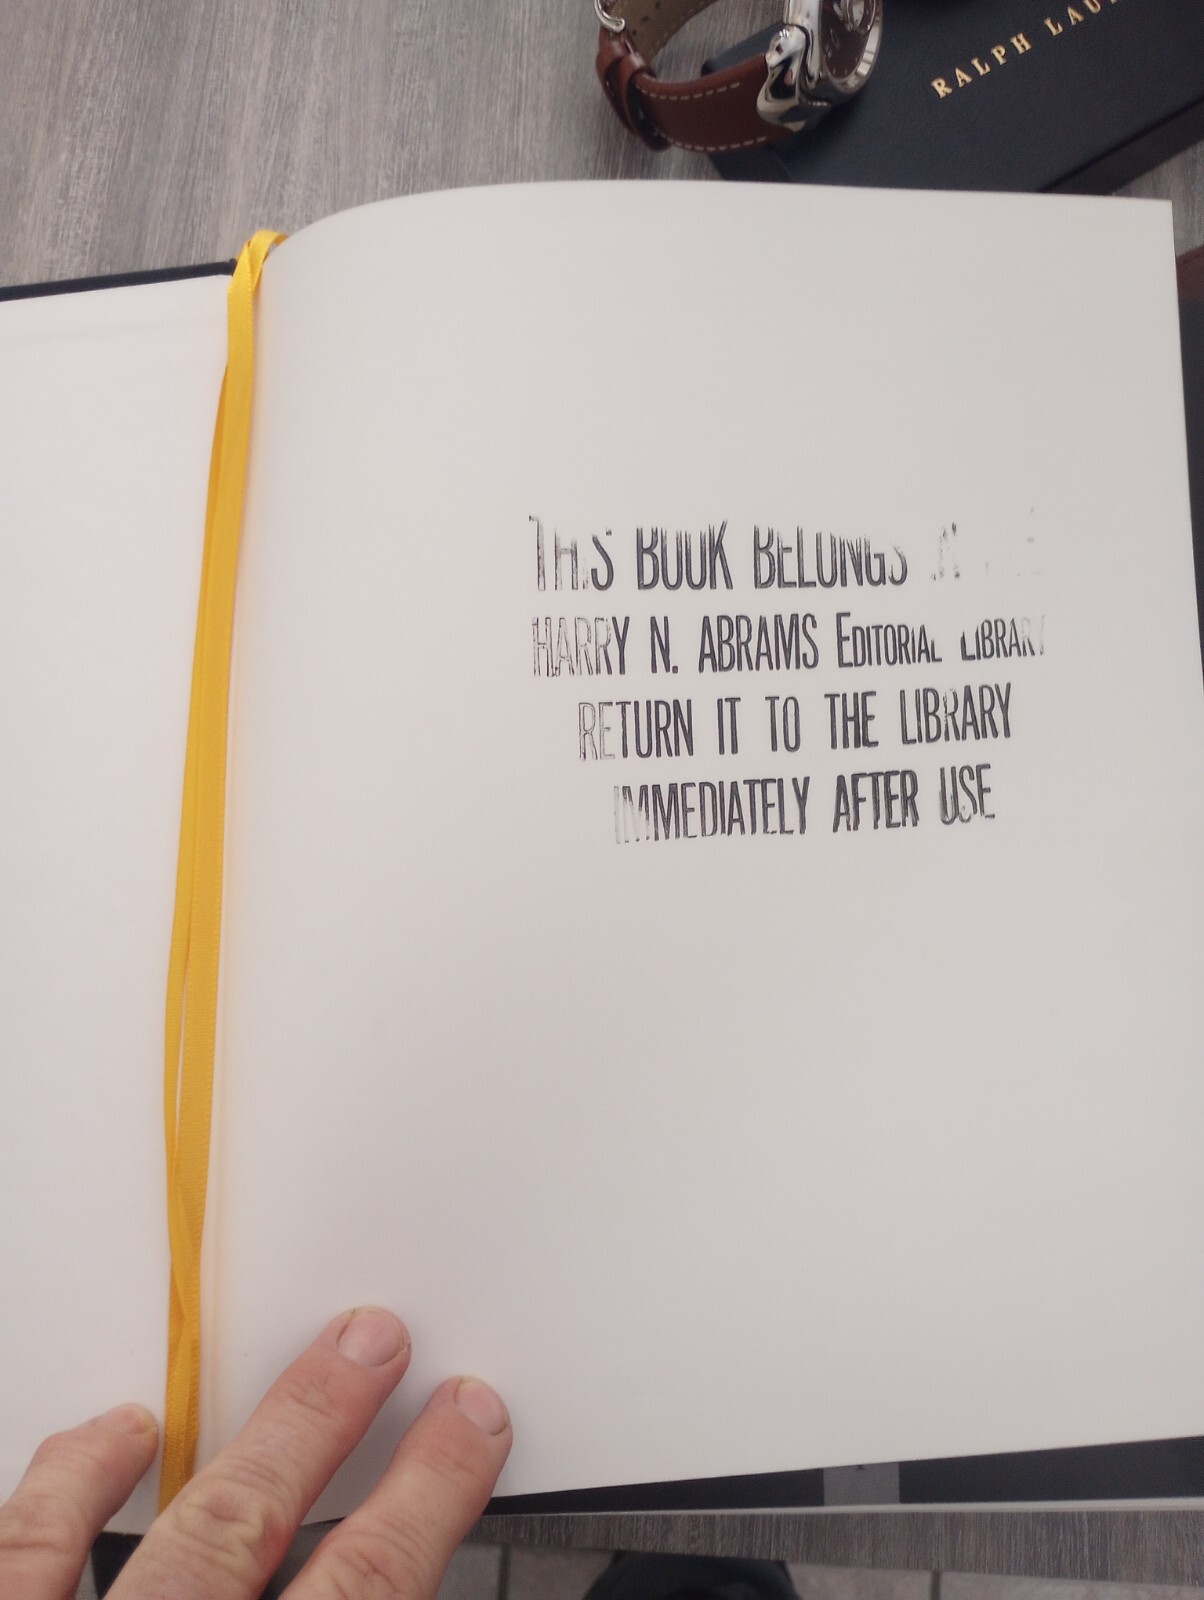 RALPH
THIS BOOK BELONGS
HARRY N. ABRAMS EDITORIAL LIBRARY
RETURN IT TO THE LIBRARY
IMMEDIATELY AFTER USE